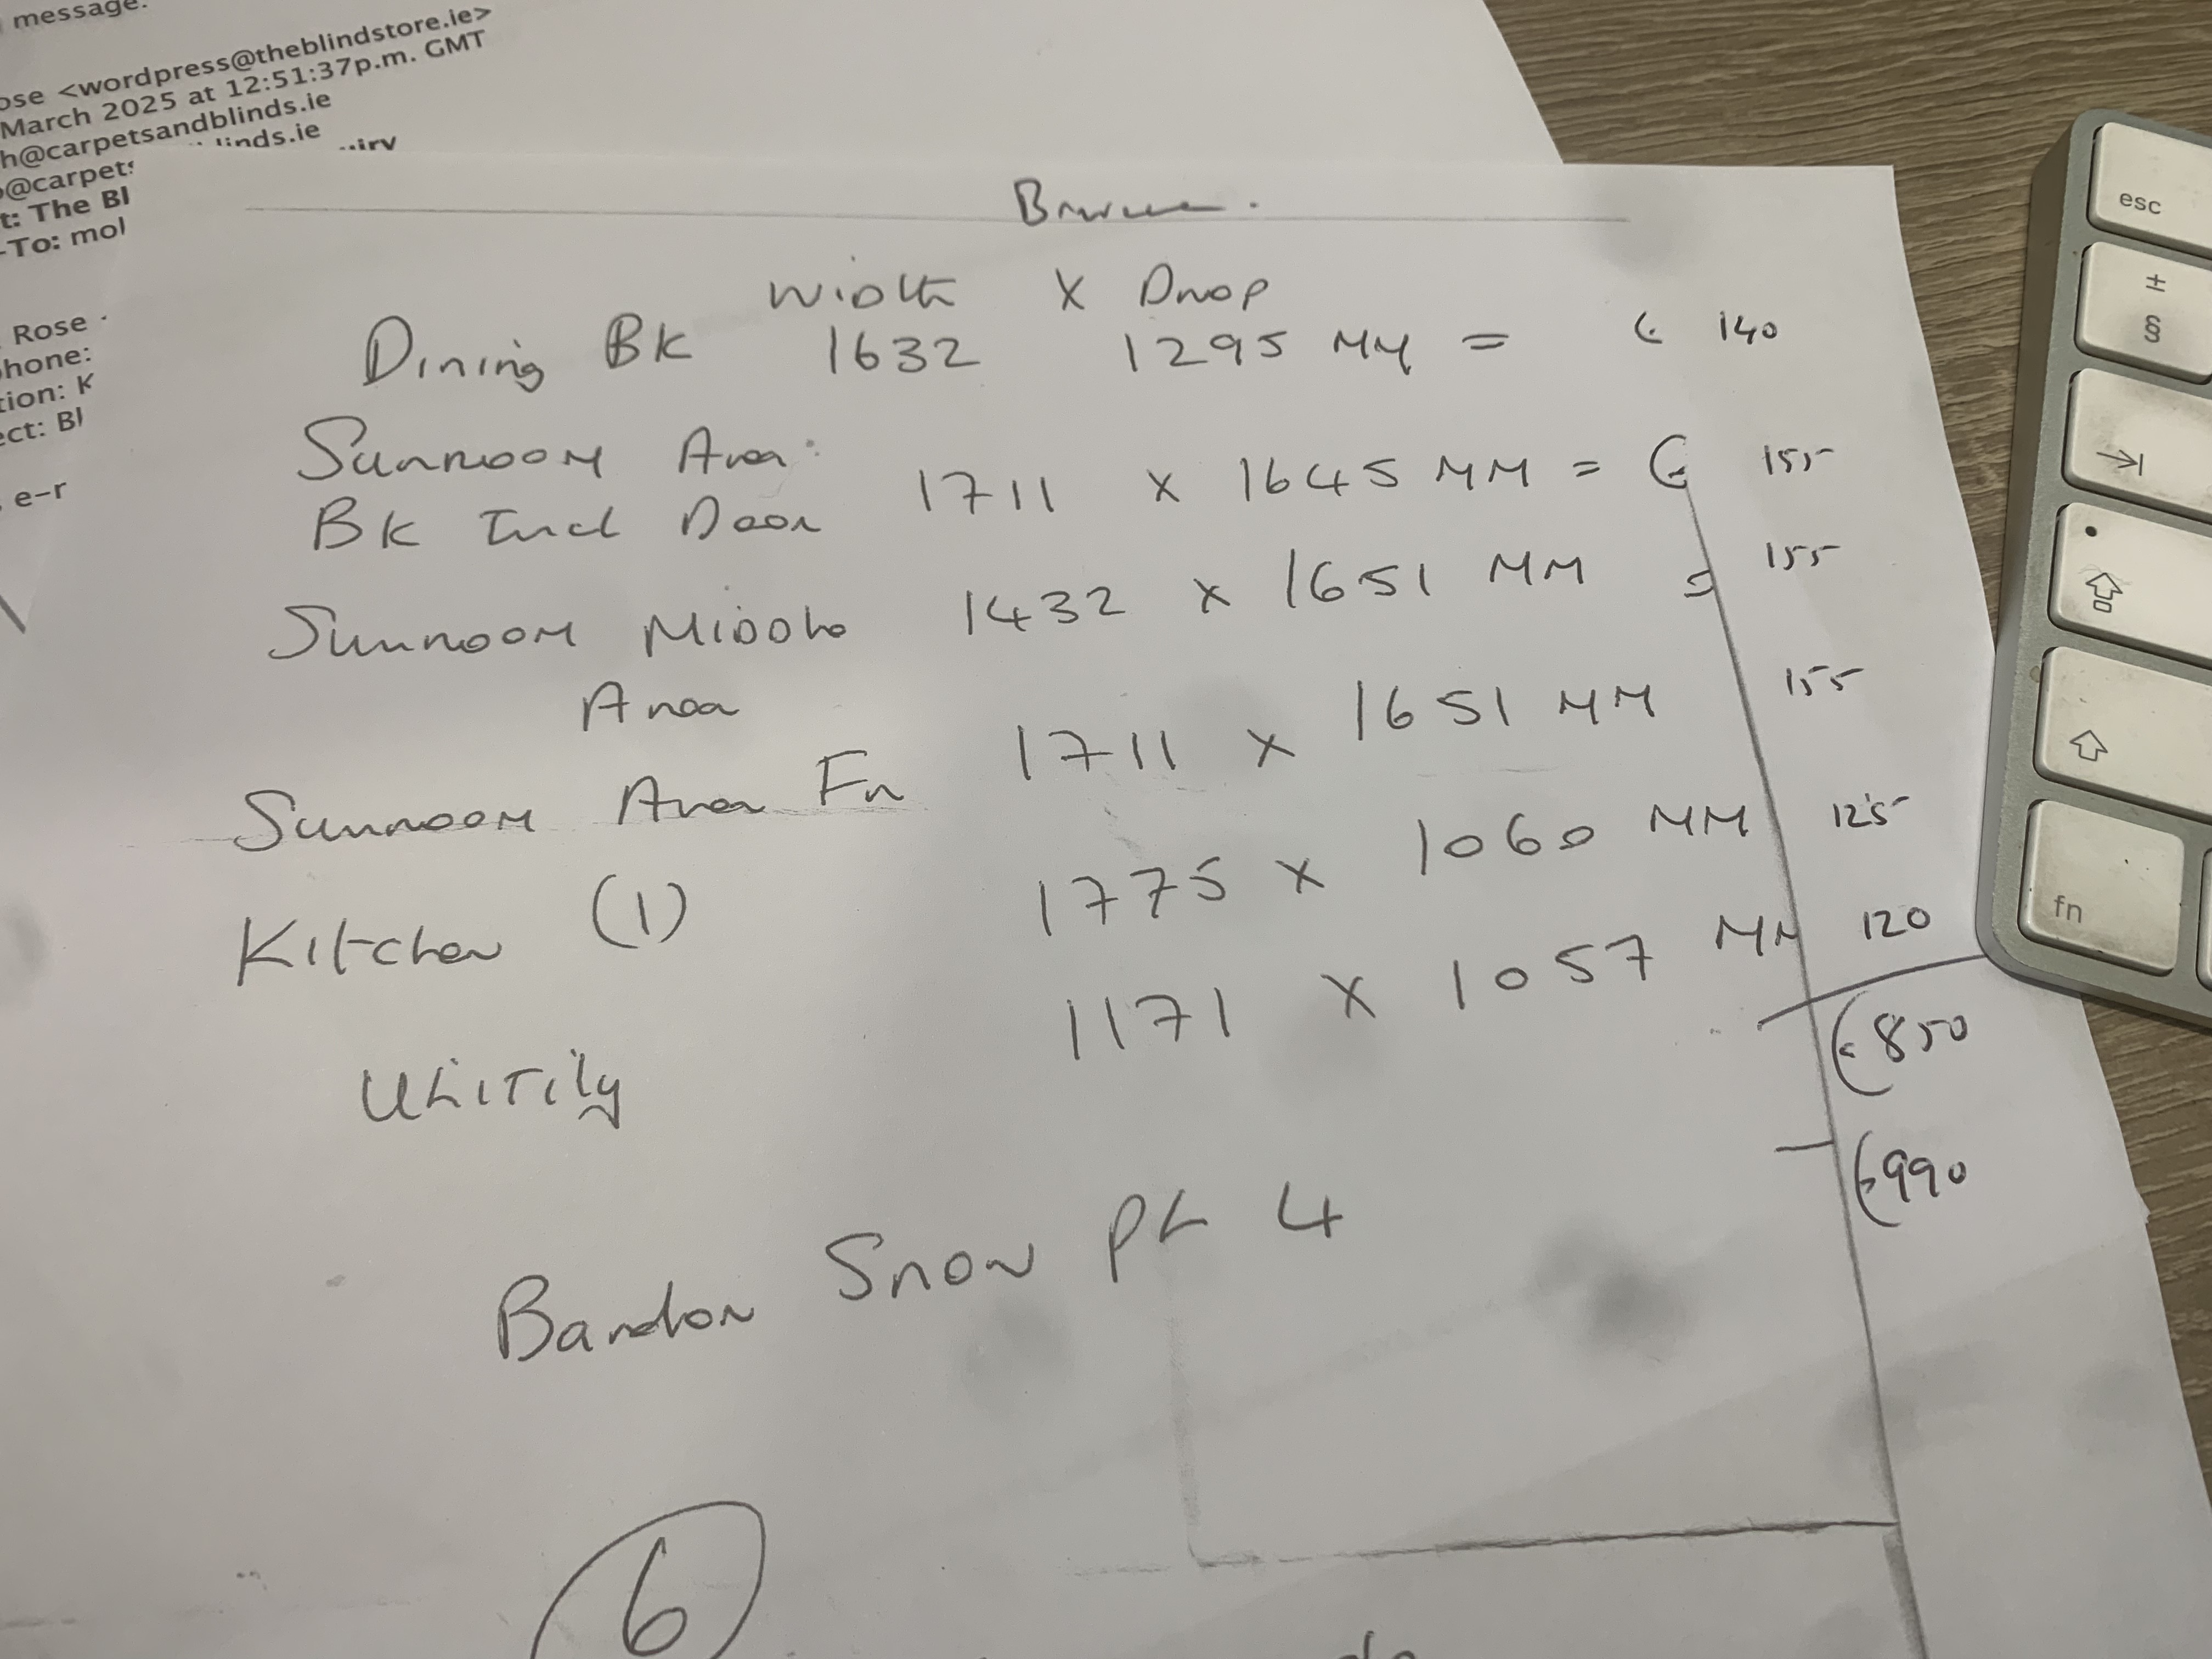 message.
ose <wordpress@theblindstore.ie>
March 2025 at 12:51:37p.m. GMT
h@carpetsandblinds.ie
o@carpets linds.ie
t: The Bl
-To: mol
Rose
hone:
tion: K
ect: Bl
e-r
Width X Drop
Dining BK 1632 1295 MM = € 140
Sunroom Area:
BK Incl Door 1711 x 1645 MM = € 155
Sunroom Middle 1432 x 1651 MM = 155
Area
Sunroom Area Fr 1711 x 1651 MM 155
Kitchen (1) 1775 x 1060 MM 125
Utility 1171 x 1057 MM 120
€850
€990
Bandon Snow PL 4
6
esc
±
§
fn